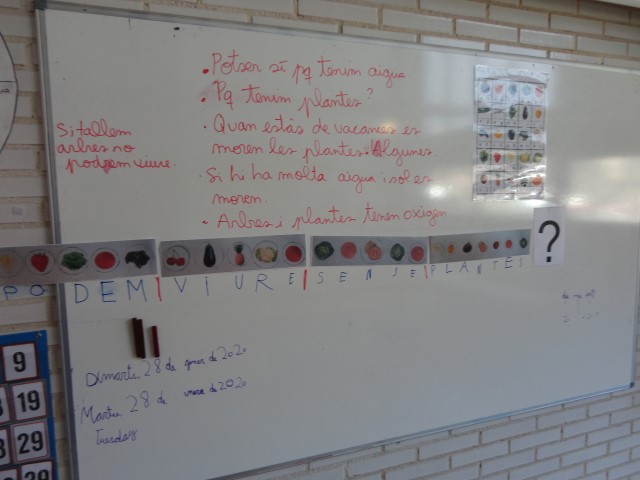 • Potser sí pq tenim aigua
• Pq tenim plantes?
• Quan estàs de vacances es
moren les plantes. Algunes.
• Si hi ha molta aigua i sol es
moren.
• Arbres i plantes tenen oxigen
Si tallem
arbres no
podem viure.
PODEM | VIURE | SENSE | PLANTES ?
Dimarts 28 de gener de 2020
Martes 28 de enero de 2020
Tuesday
9
19
29